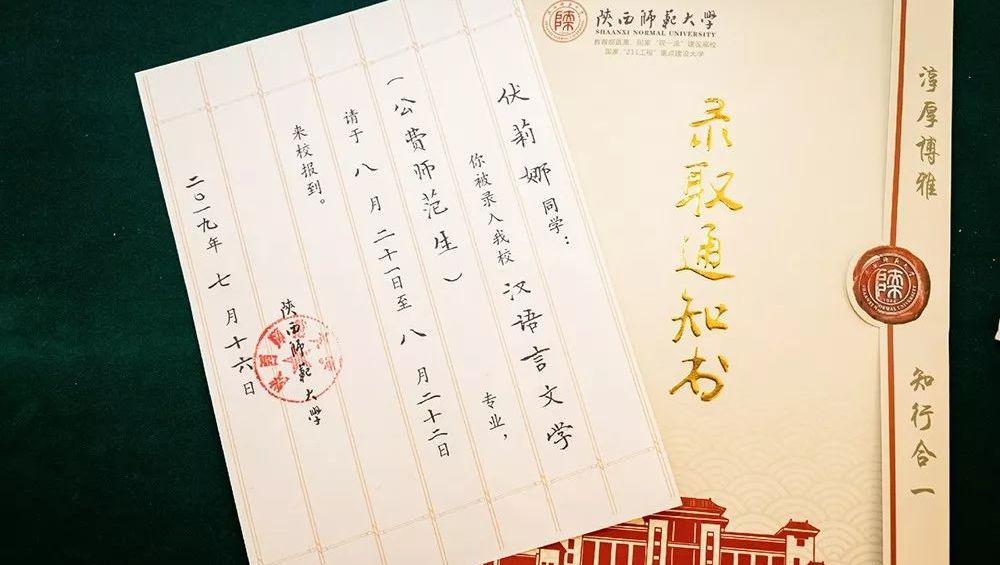 伏莉娜同学：
你被录入我校汉语言文学专业，
（公费师范生）
请于八月二十一日至八月二十二日
来校报到。
陕西师范大学
二〇一九年七月十六日
陕西师范大学
SHAANXI NORMAL UNIVERSITY
教育部直属、国家“双一流”建设高校
国家“211工程”重点建设大学
录取通知书
淳厚博雅
知行合一
陕西师范大学
SHAANXI NORMAL UNIVERSITY